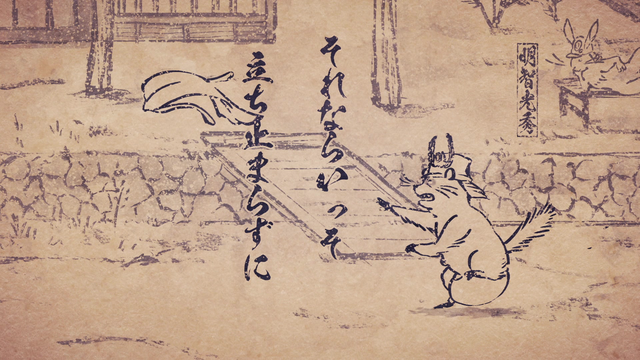 明智光秀
それならいっそ
立ち止まらずに